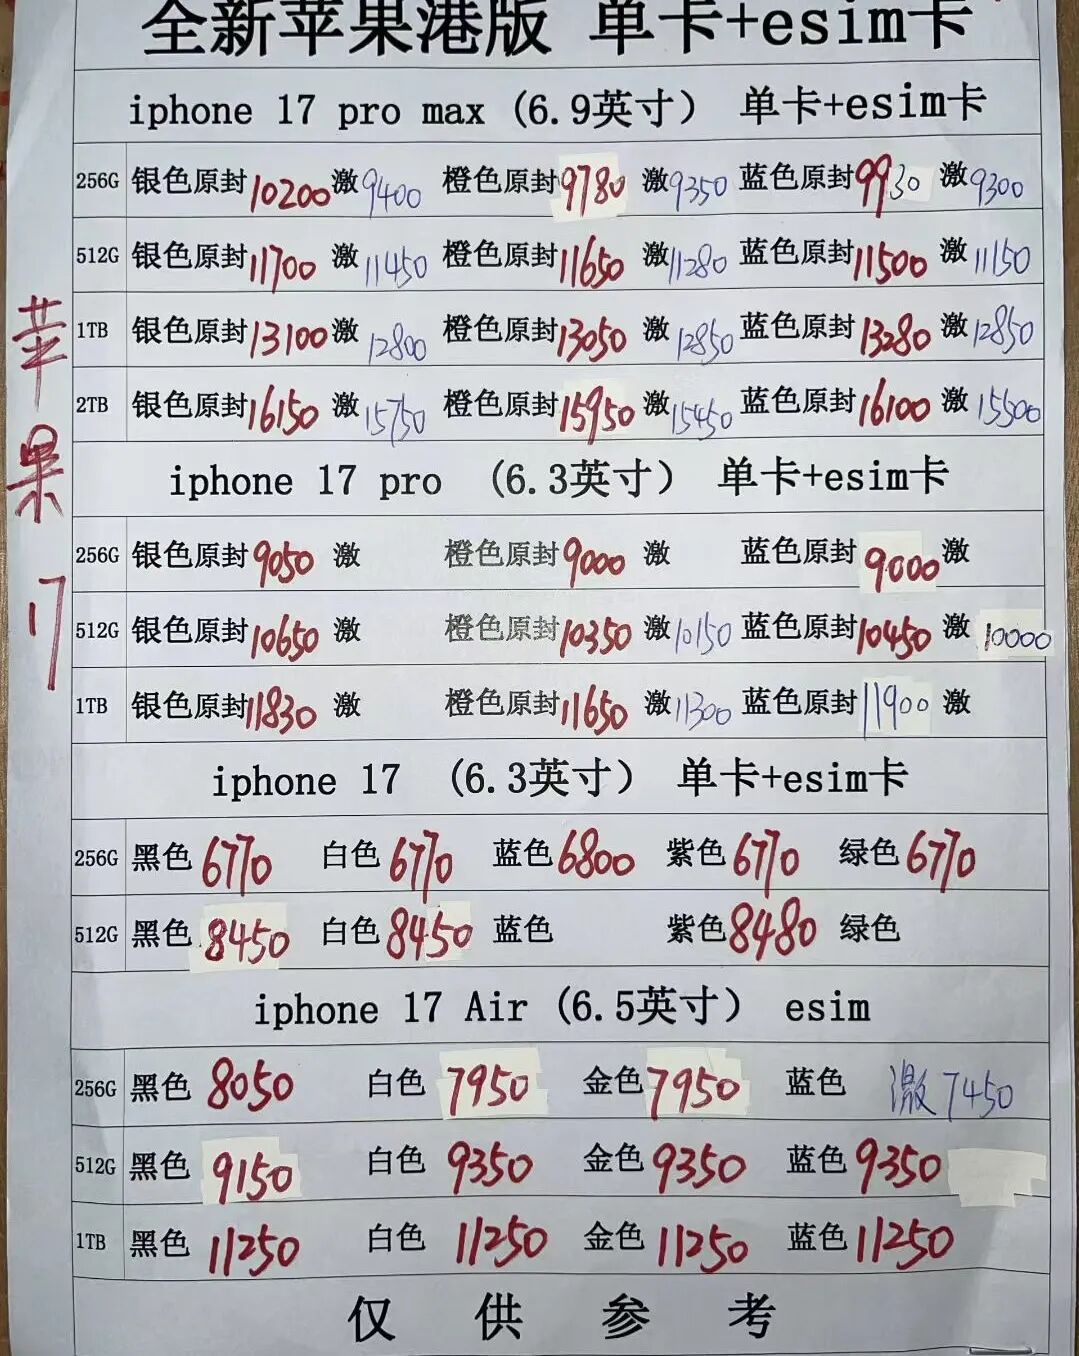 全新苹果港版 单卡+esim卡
iphone 17 pro max (6.9英寸) 单卡+esim卡
256G 银色原封10200激9400 橙色原封9780 激9350 蓝色原封9930 激9300
512G 银色原封11700 激11450 橙色原封11650 激11280 蓝色原封11500 激11150
1TB 银色原封13100激12800 橙色原封13050 激12850 蓝色原封13280 激12850
2TB 银色原封16150 激15750 橙色原封15950 激15450 蓝色原封16100 激15500
iphone 17 pro (6.3英寸) 单卡+esim卡
256G 银色原封9050 激 橙色原封9000 激 蓝色原封9000激
512G 银色原封10650 激 橙色原封10350 激10150 蓝色原封10450 激10000
1TB 银色原封11830 激 橙色原封11650 激11300 蓝色原封11900 激
iphone 17 (6.3英寸) 单卡+esim卡
256G 黑色6770 白色6770 蓝色6800 紫色6770 绿色6770
512G 黑色8450 白色8450 蓝色 紫色8480 绿色
iphone 17 Air (6.5英寸) esim
256G 黑色 8050 白色 7950 金色7950 蓝色 激7450
512G 黑色 9150 白色 9350 金色9350 蓝色9350
1TB 黑色 11250 白色 11250 金色11250 蓝色11250
仅供参考
苹果17